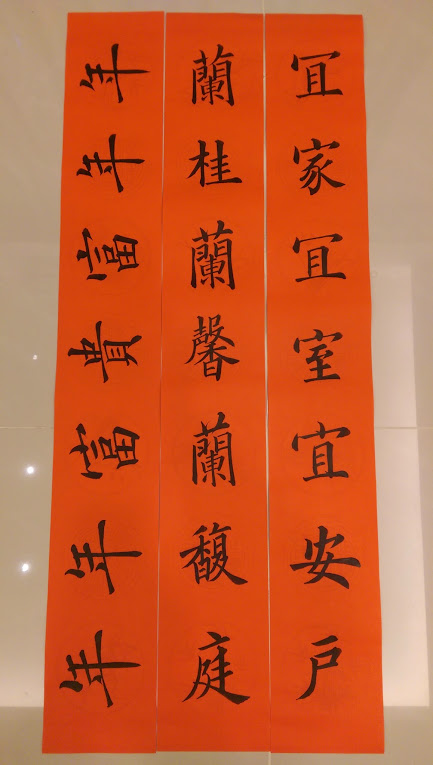 冝家冝室宜安户
蘭桂蘭馨蘭馥庭
年年富貴富年年